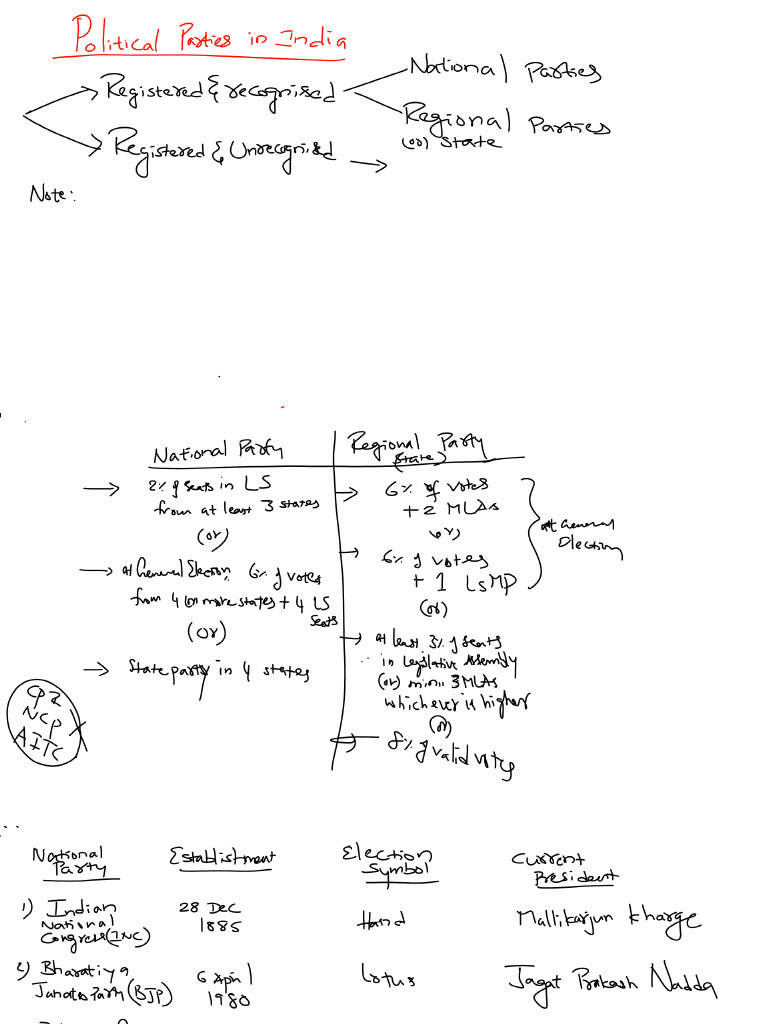 Political Parties in India
Registered & recognised
National Parties
Regional Parties
(or) State
Registered & Unrecognised
Note:
National Party
Regional Party
(State)
2% of seats in LS
from at least 3 states
(or)
at General Election 6% of votes
from 4 (or) more states + 4 LS
seats
(or)
State party in 4 states
6% of votes
+ 2 MLAs
(or)
6% of votes
+ 1 LS MP
(or)
at General
Election
at least 3% of seats
in Legislative Assembly
(or) mini 3 MLAs
which ever is higher
(or)
8% of valid votes
CPI
NCP
AITC
National
Party
Establishment
Election
Symbol
Current
President
1) Indian
National
Congress (INC)
28 Dec
1885
Hand
Mallikarjun Kharge
2) Bharatiya
Janata Party (BJP)
6 April
1980
Lotus
Jagat Prakash Nadda